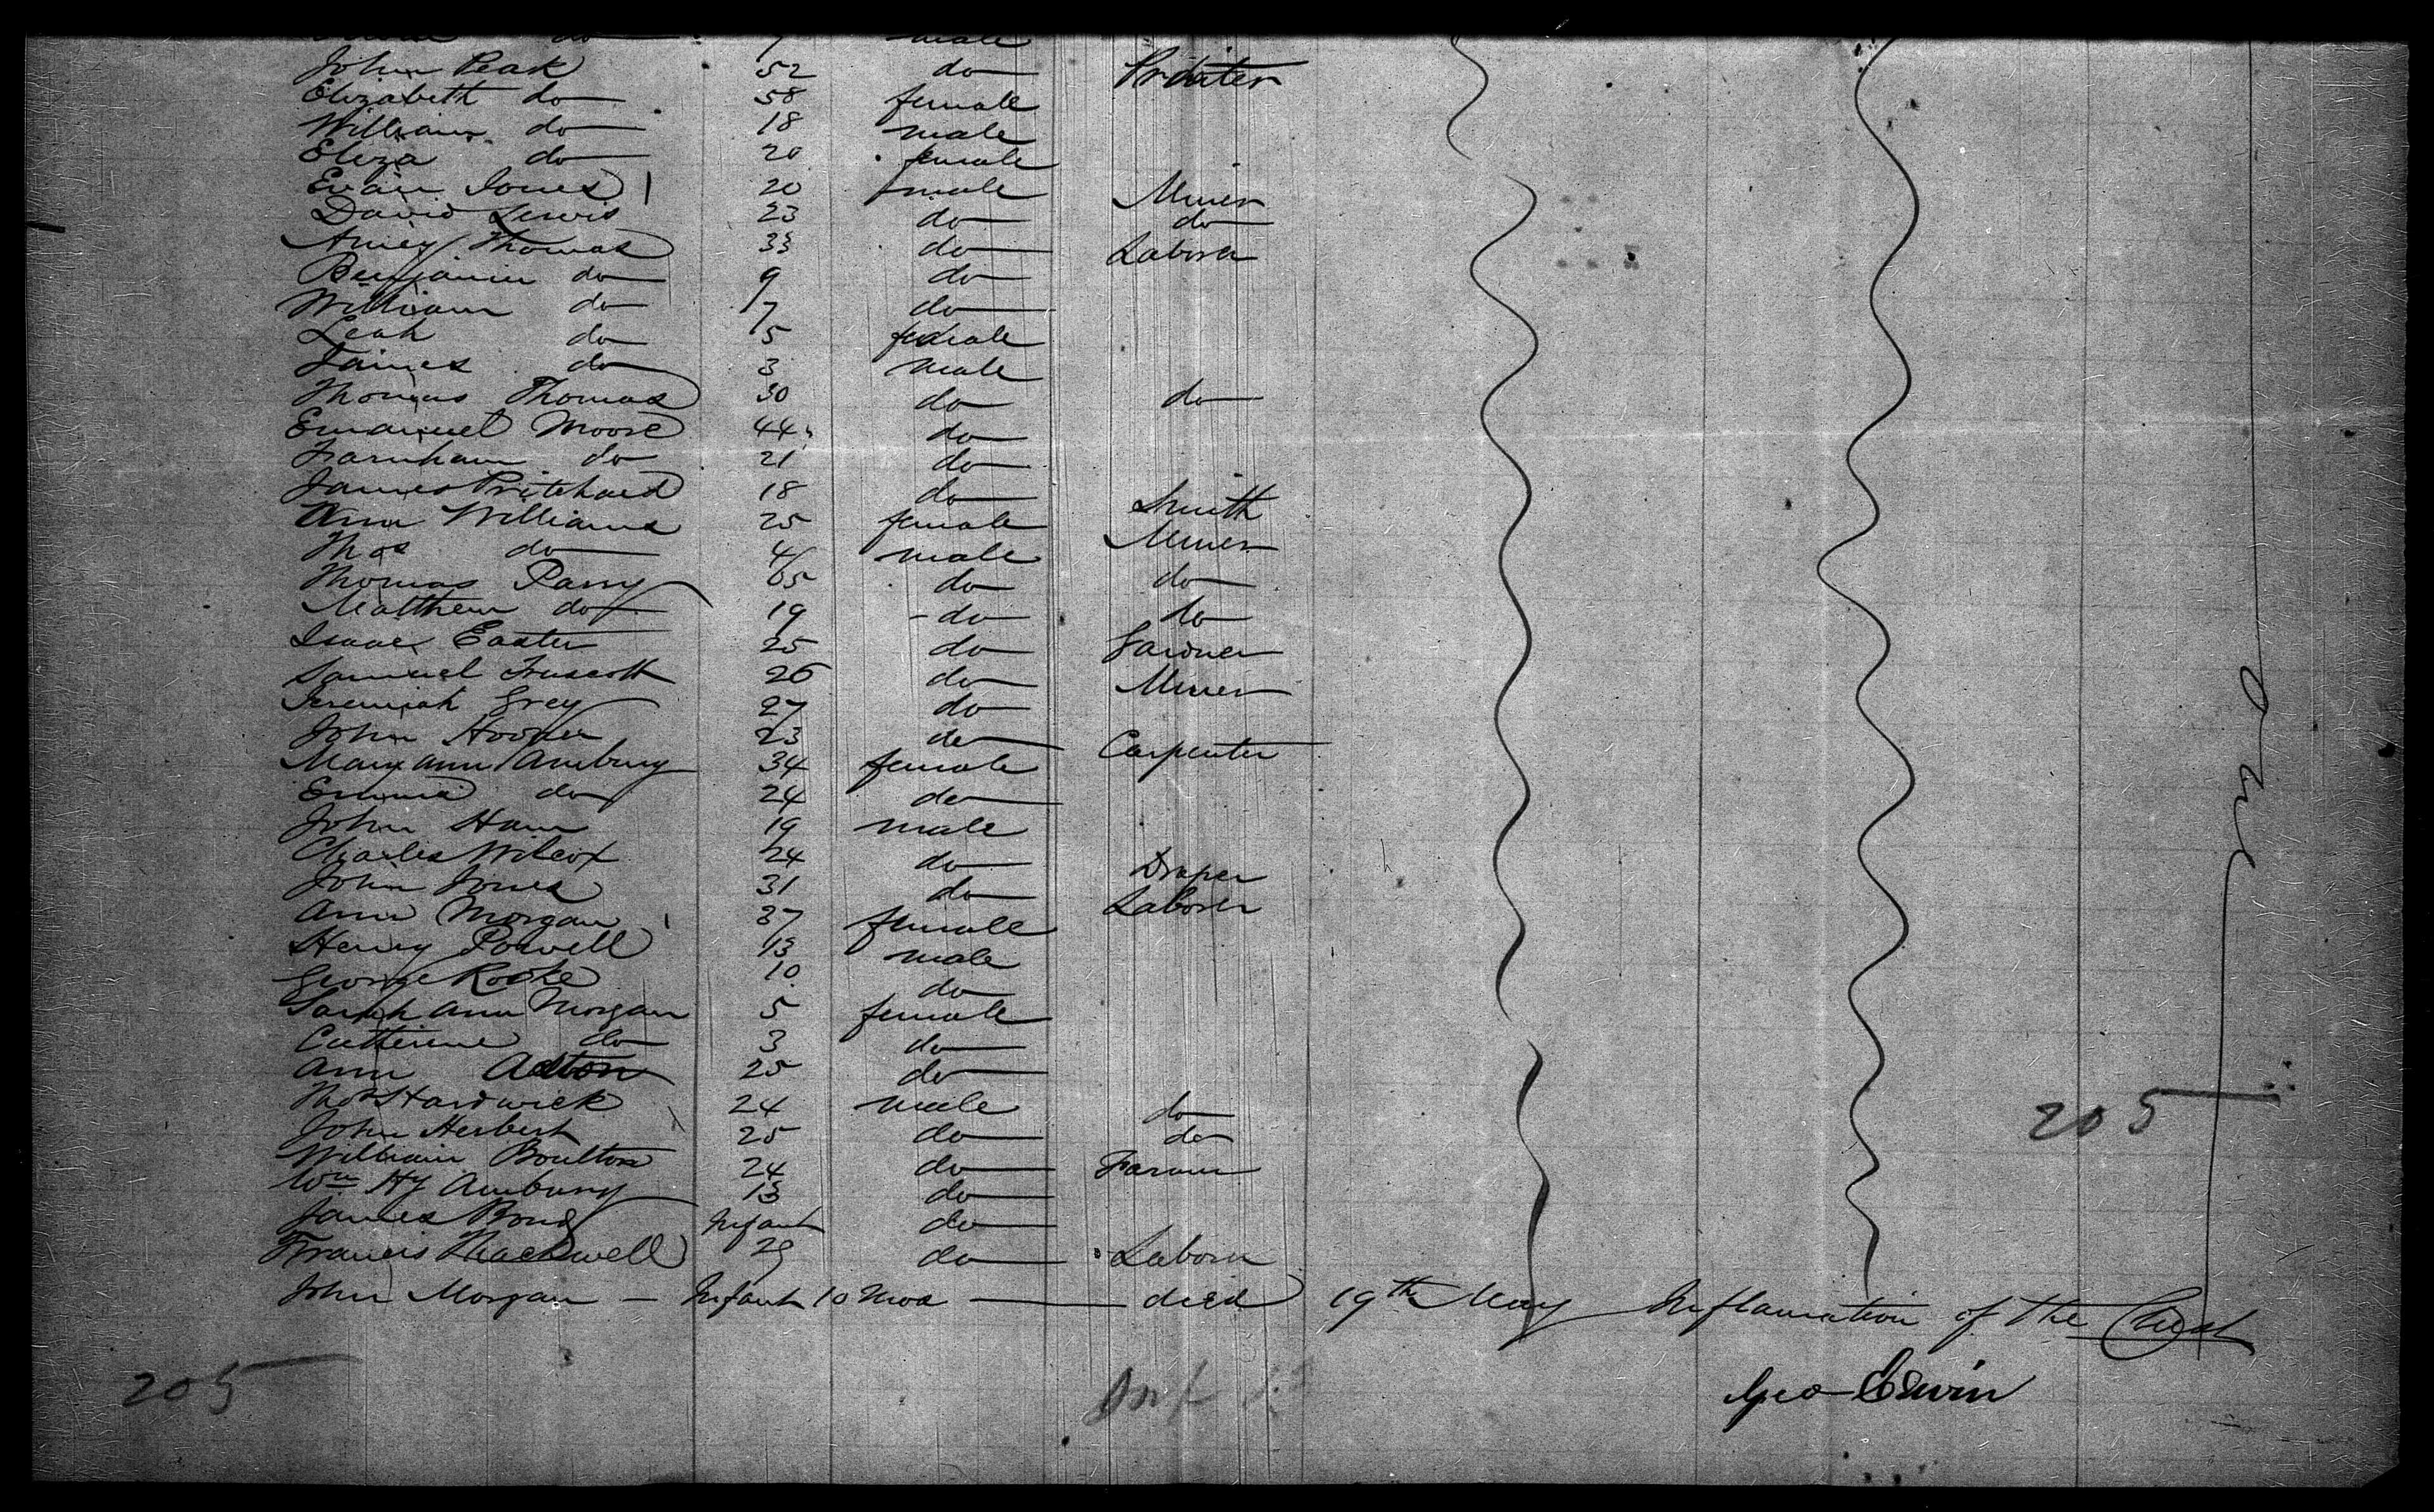 do 7 male
John Peak 52 do Printer
Elizabeth do 58 female
William do 18 male
Eliza do 20 female
Evan Jones 20 male Miner
David Lewis 23 do do
Thomas 33 do Laborer
Benjamin do 9 do
William do 7 do
Leah do 5 female
James do 3 male
Thomas Thomas 30 do do
Emanuel Moore 44 do
Farnham do 21 do
James Pritchard 18 do Smith
Ann Williams 25 female Miner
Thos do 4 male
Thomas Parry 65 do do
Matthew do 19 do do
Isaac Easter 25 do Gardner
Samuel Truscott 26 do Miner
Jeremiah Grey 27 do
John Hooper 23 do Carpenter
Mary Ann Ambury 34 female
Emma do 24 do
John Ham 19 male
Charles Wilcox 24 do Draper
John Jones 31 do Laborer
Ann Morgan 37 female
Henry Powell 13 male
George Rooke 10 do
Sarah Ann Morgan 5 female
Catherine do 3 do
Ann Acton 25 do
Thos Hardwick 24 male do
John Herbert 25 do do
William Boulton 24 do Farmer
Wm Hy Ambury 13 do
James Bond Infant do
Francis Thackwell 29 do Laborer
John Morgan — Infant 10 mos — died 19th May Inflamation of the Chest
Geo Erwin
205
205
one